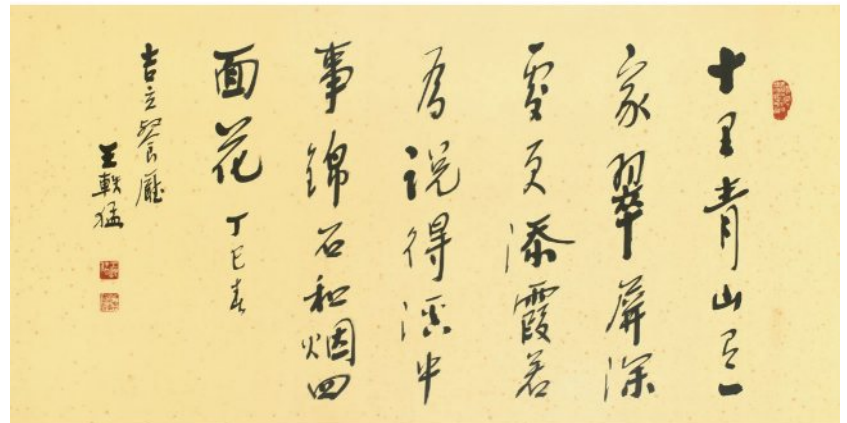 十里青山有一
家翠屏深
處更添霞若
為説得溪中
事錦石和烟四
面花 丁巳春
吉立餐廳
王軼猛